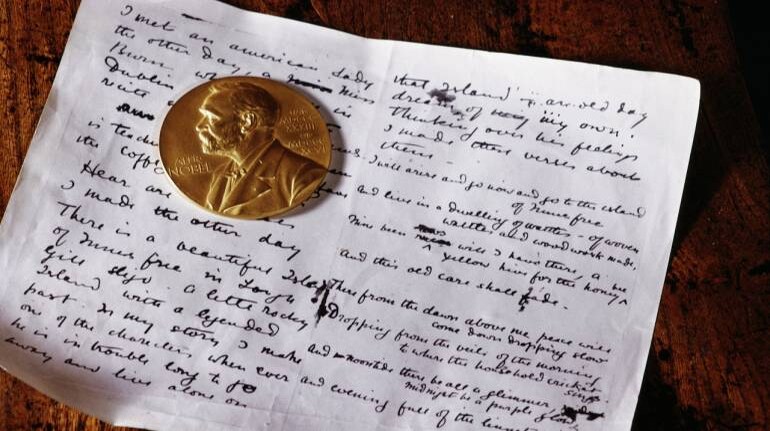 I met an american Lady
the other day, a Miss
in
Dublin
route
is teach
the coff
Hear are
I made the other day
There is a beautiful Island
of Innis free in Lough
Gill Sligo a little rocky
Island with a legended
past. In my story I make
one of the charecters when ever
he is in trouble long to go
away and live alone on
ALFR.
NOBEL
that Island — an old day
dream of my own.
Thinking over his feelings
I made these verses about
them —
I will arise and go now and go to the island
of Innis free
And live in a dwelling of wattles — of woven
wattles and wood work made,
Nine been will I have there, a
yellow hive for the honey
And this old care shall fade.
There from the dawn above me peace will
come down dropping slow
Dropping from the veils of the morning
to where the household cricket
sings.
And noontide there be all a glimmer,
midnight be a purple glow
and evening full of the linnets